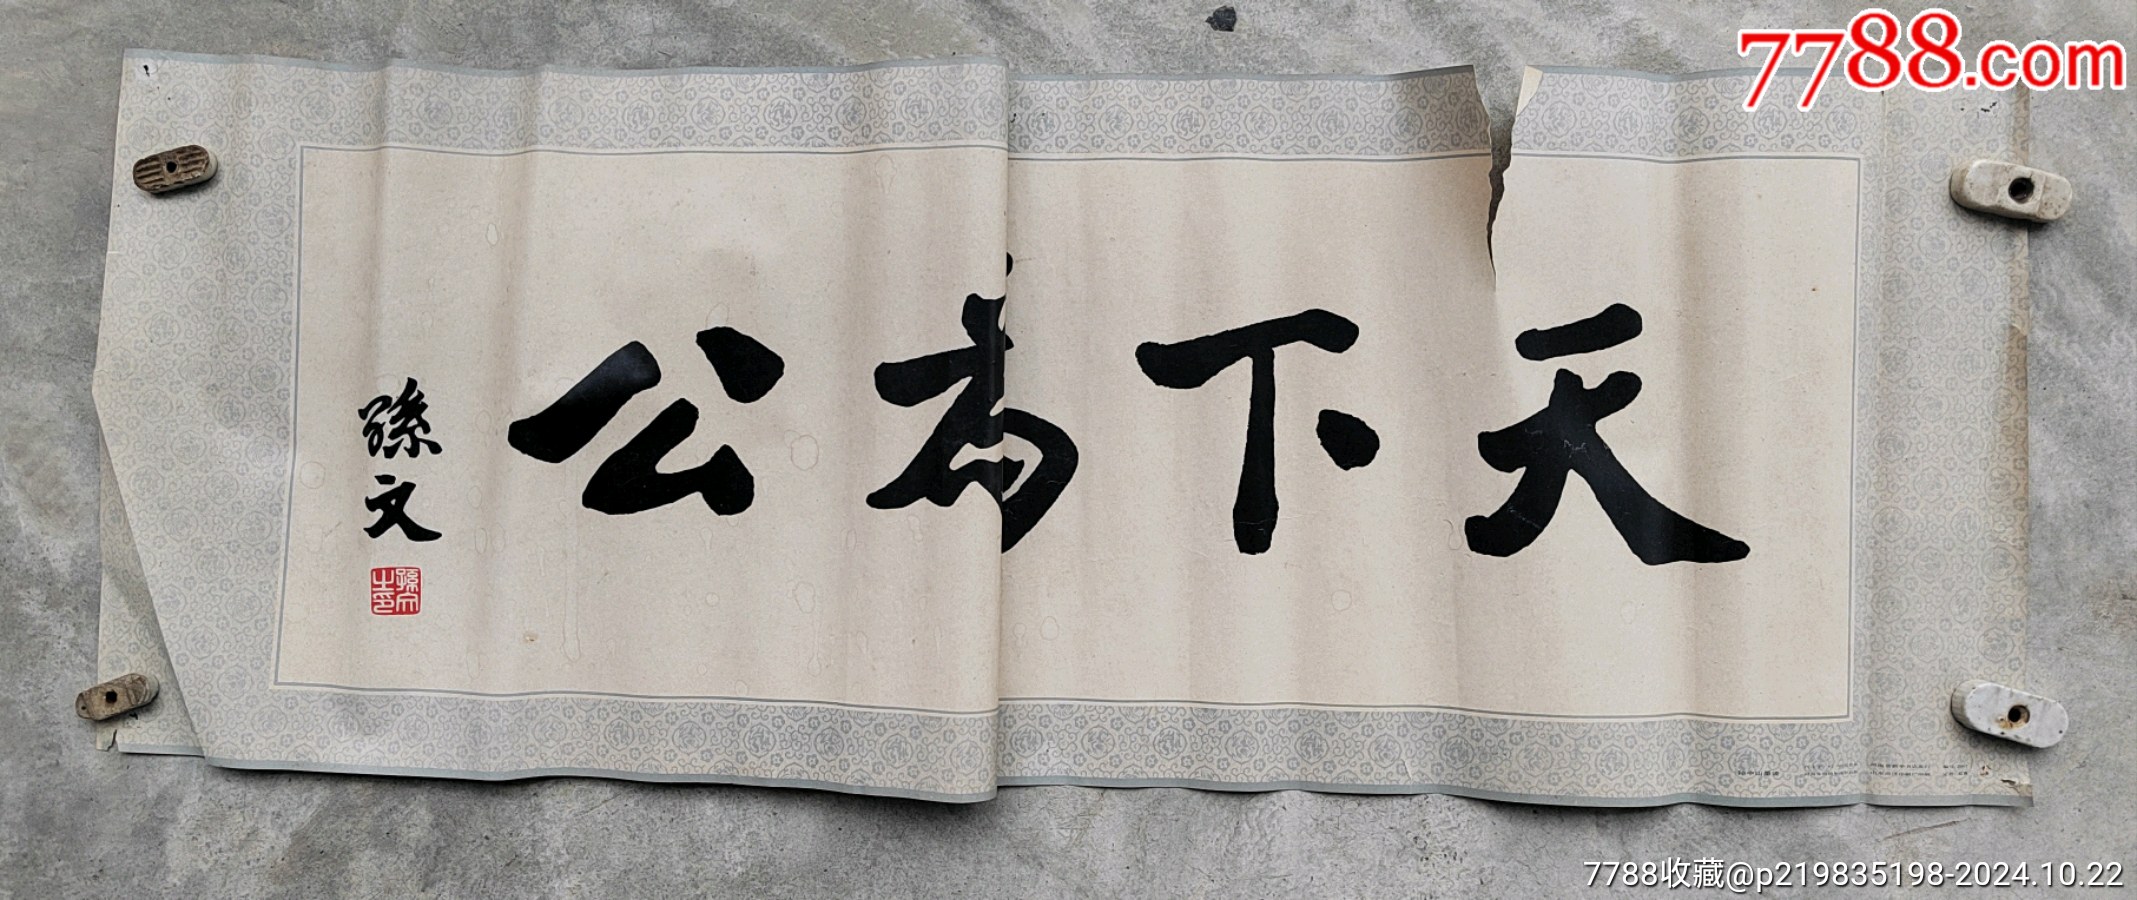 7788.com
天下為公
孫文
孫文之印
7788收藏@p219835198-2024.10.22